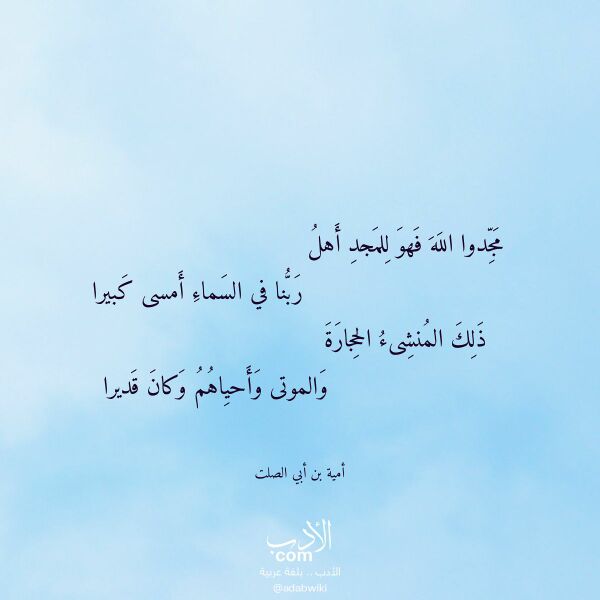 مَجِّدوا اللَهَ فَهوَ لِلمَجدِ أَهلُ
رَبُّنا في السَماءِ أَمسى كَبيرا
ذَلِكَ المُنشِىءُ الحِجارَةَ
وَالموتى وَأَحياهُمُ وَكانَ قَديرا
أمية بن أبي الصلت
الأدب
com
الأدب .. بلغة عربية
@adabwiki